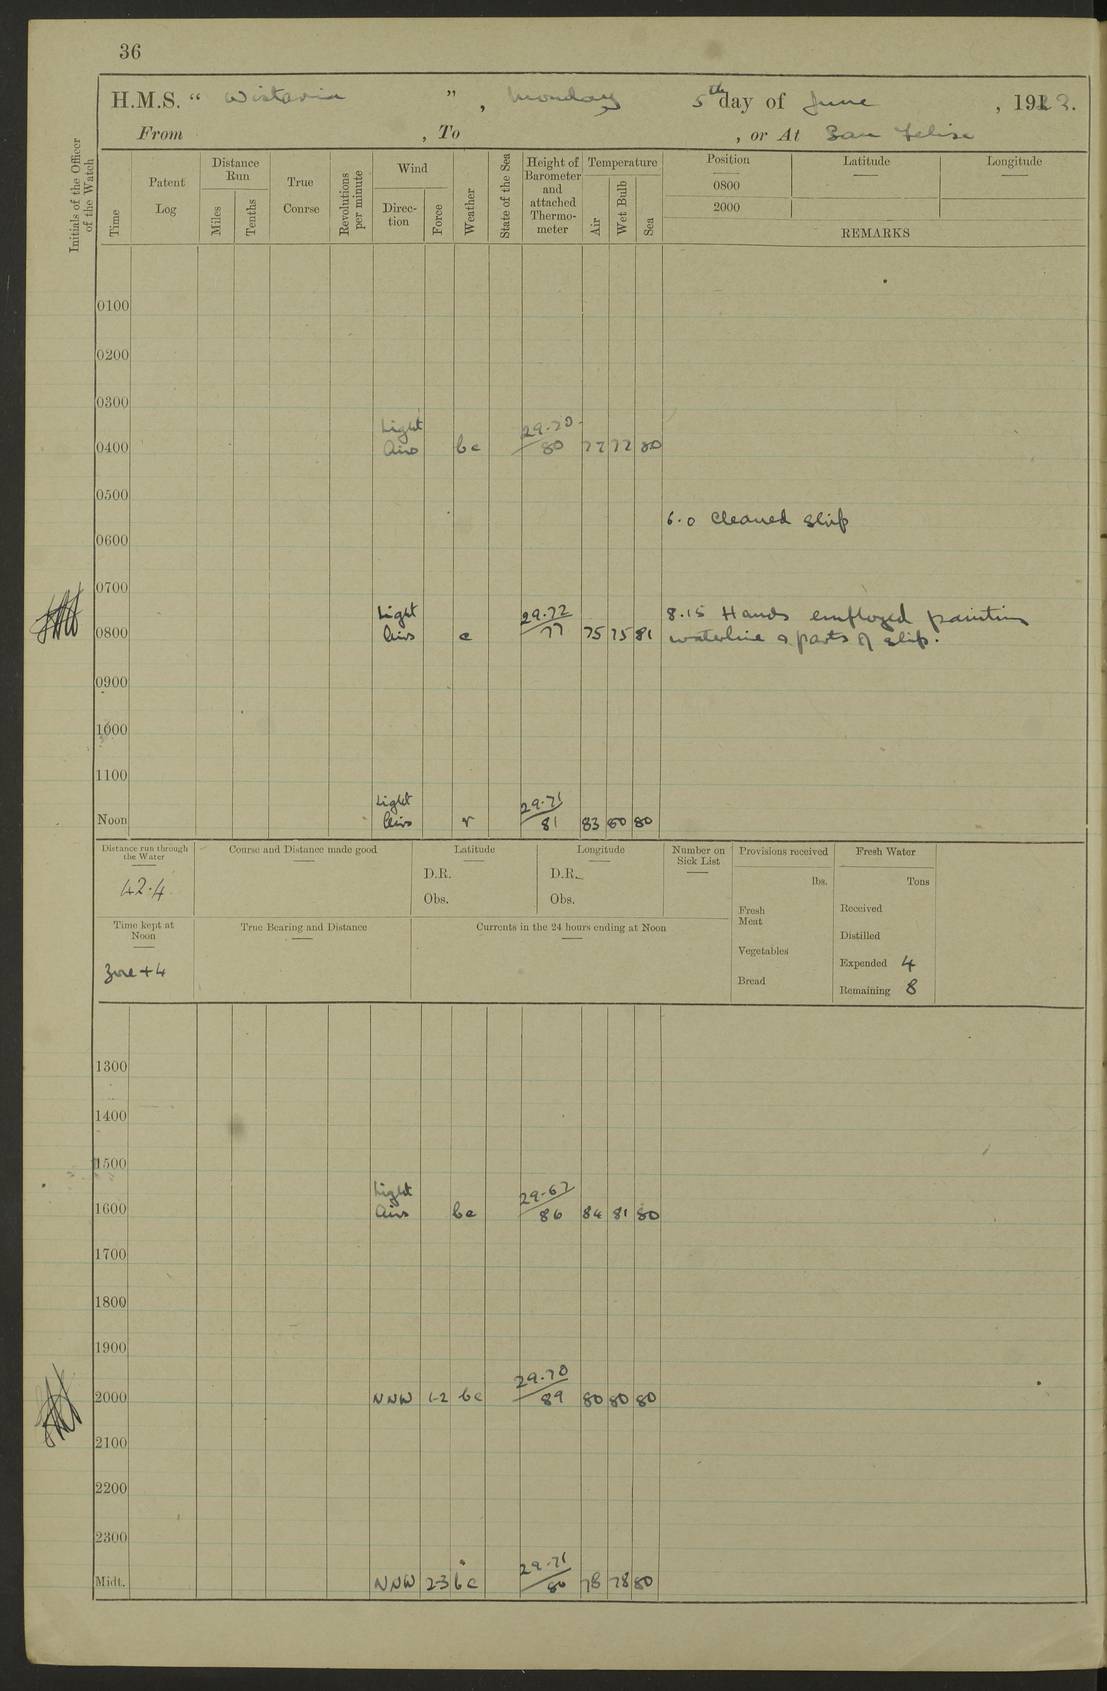 36
H.M.S. “ Wistaria ” , Monday 5th day of June , 1923.
From , To , or At San Felise
Initials of the Officer of the Watch
Time
Patent Log
Distance Run
Miles
Tenths
True Course
Revolutions per minute
Wind
Direc-tion
Force
Weather
State of the Sea
Height of Barometer and attached Thermo-meter
Temperature
Air
Wet Bulb
Sea
Position
Latitude
Longitude
0800
2000
REMARKS
0100
0200
0300
0400 Light Airs bc 29.70 / 80 77 77 80
0500
6.0 Cleaned ship
0600
0700
8.15 Hands employed painting
0800 Light Airs c 29.72 / 77 75 75 81 waterline & parts of ship.
0900
1000
1100
Noon Light Airs r 29.71 / 81 83 80 80
Distance run through the Water
42.4
Course and Distance made good
Latitude
D.R.
Obs.
Longitude
D.R.
Obs.
Number on Sick List
Provisions received
lbs.
Fresh Meat
Vegetables
Bread
Fresh Water
Tons
Received
Distilled
Expended 4
Remaining 8
Time kept at Noon
Zone +4
True Bearing and Distance
Currents in the 24 hours ending at Noon
1300
1400
1500
1600 Light Airs bc 29.67 / 86 84 81 80
1700
1800
1900
2000 NNW 1-2 bc 29.70 / 89 80 80 80
2100
2200
2300
Midt. NNW 2-3 bc 29.71 / 80 78 78 80